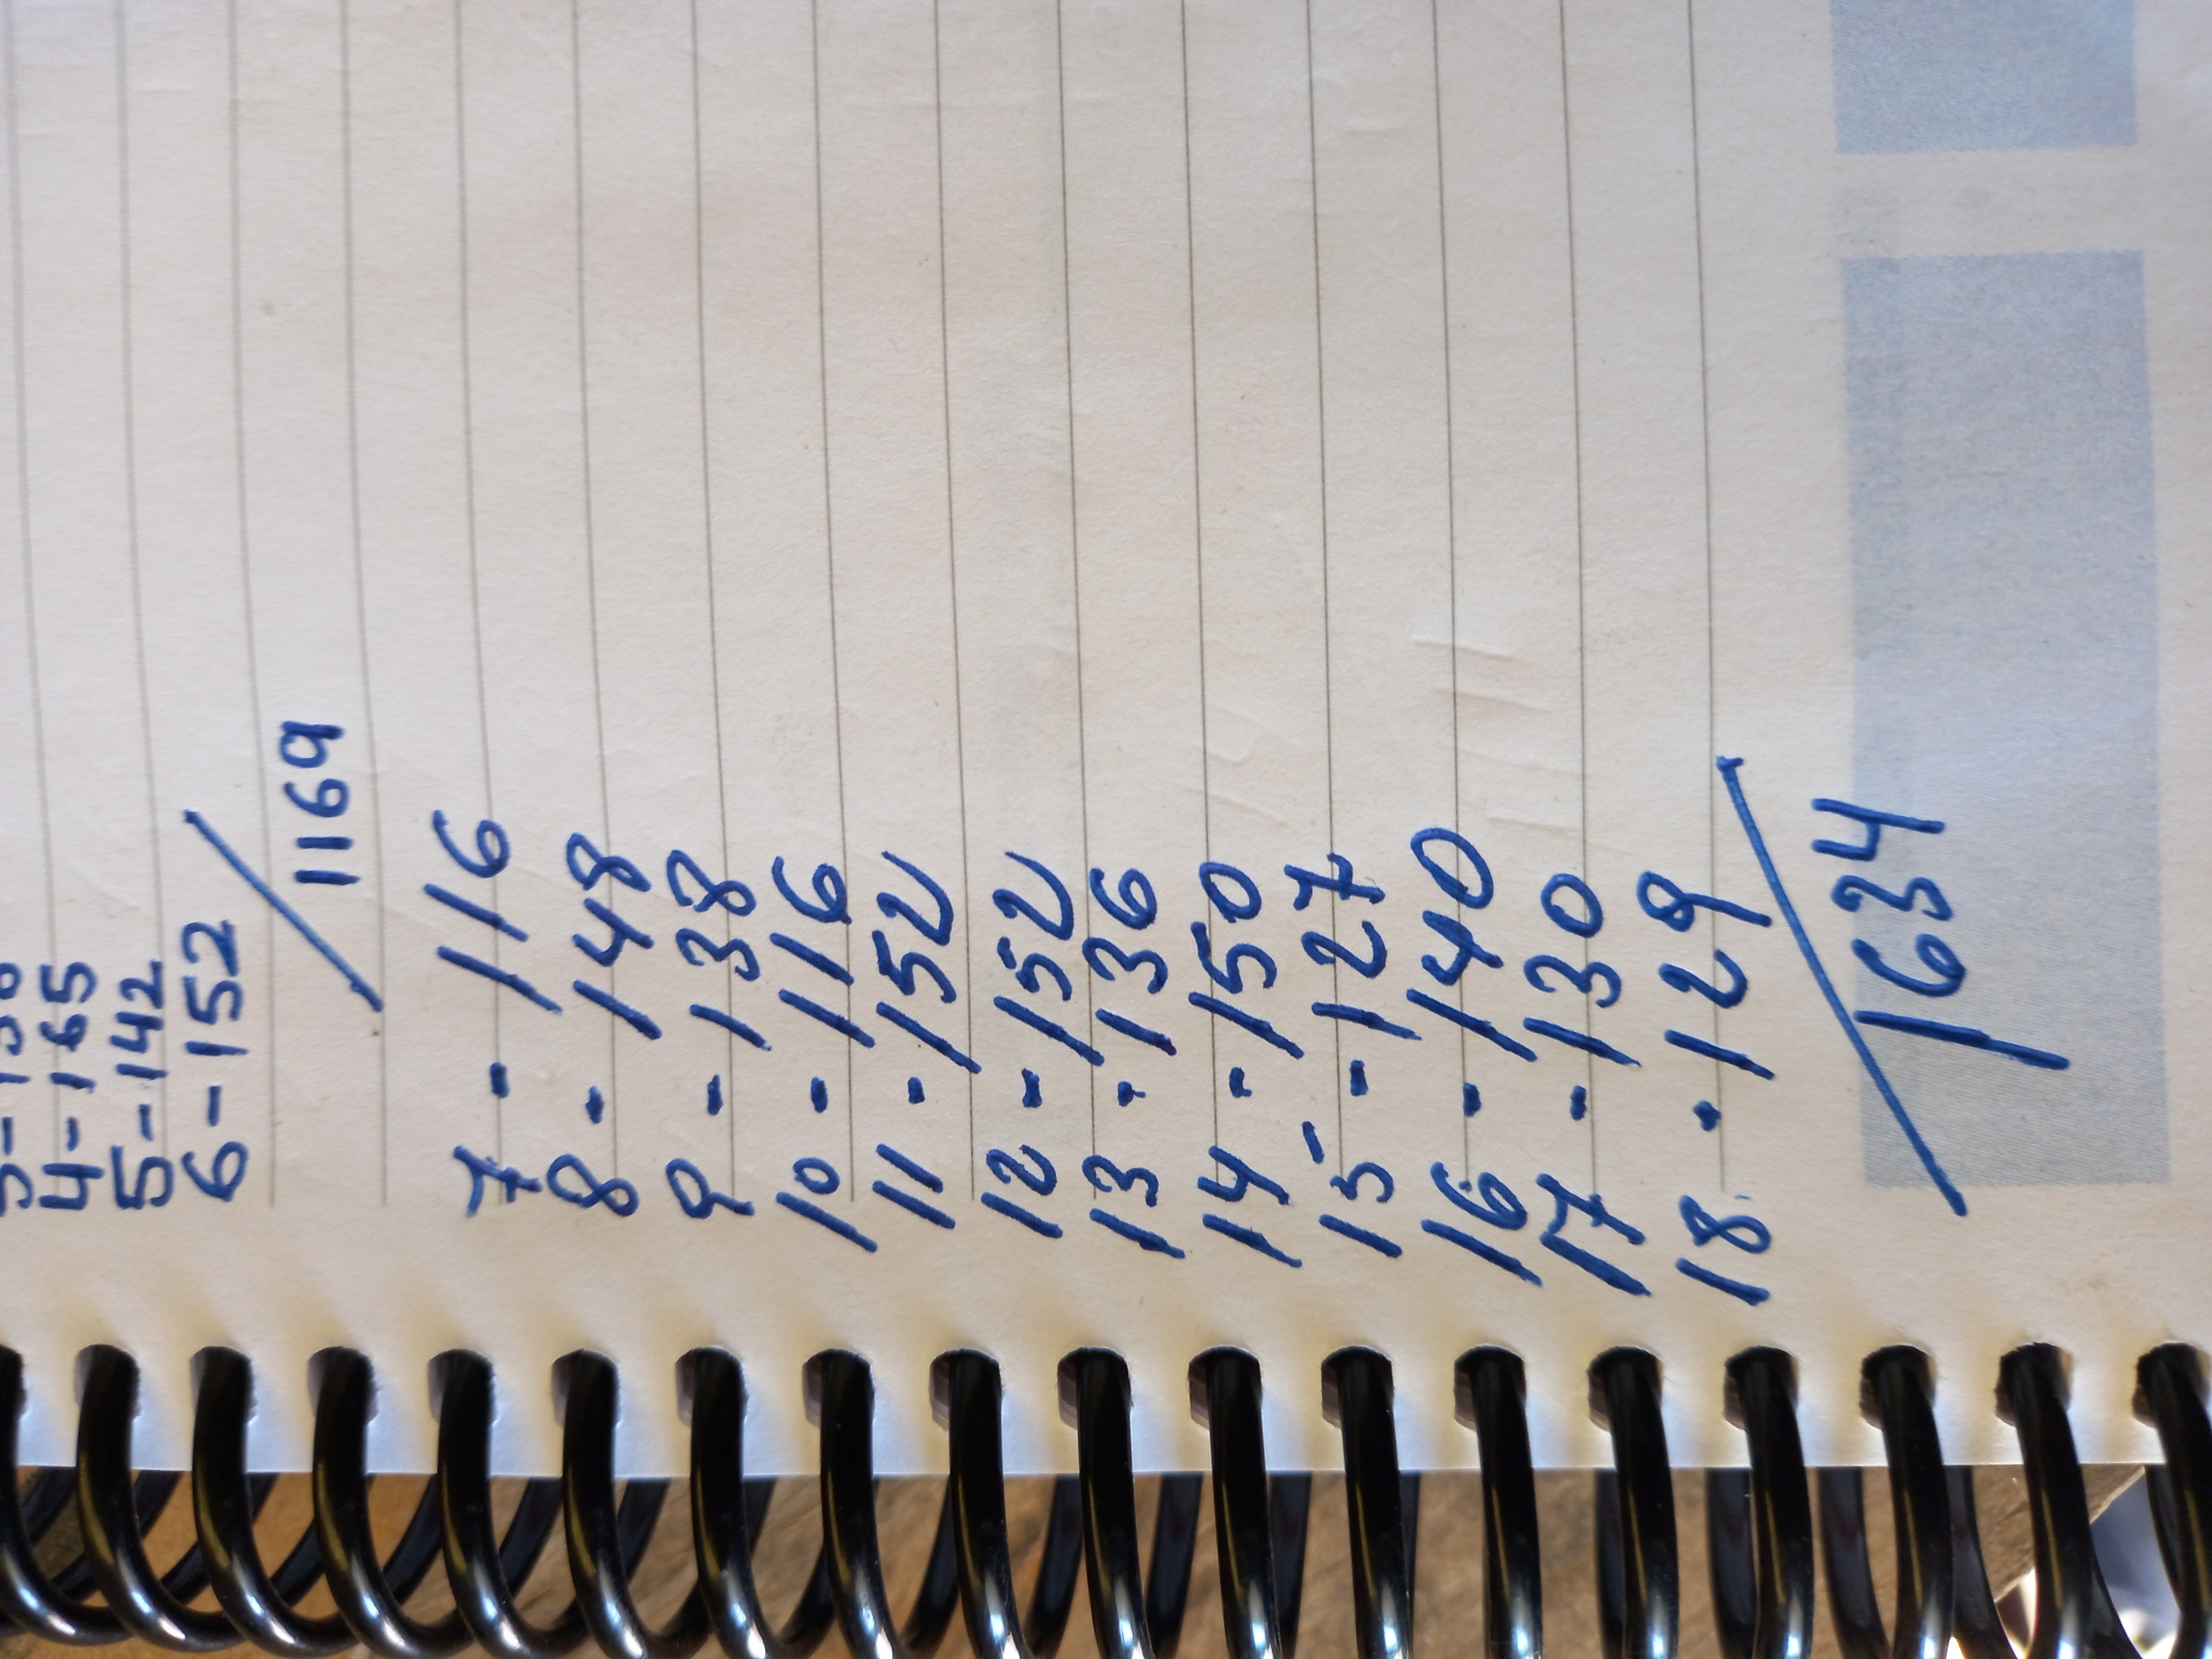 4-165
5-142
6-152
1169
7 - 116
8 - 148
9 - 138
10 - 116
11 - 152
12 - 152
13 - 136
14 - 150
15 - 127
16 - 140
17 - 130
18 - 129
1634